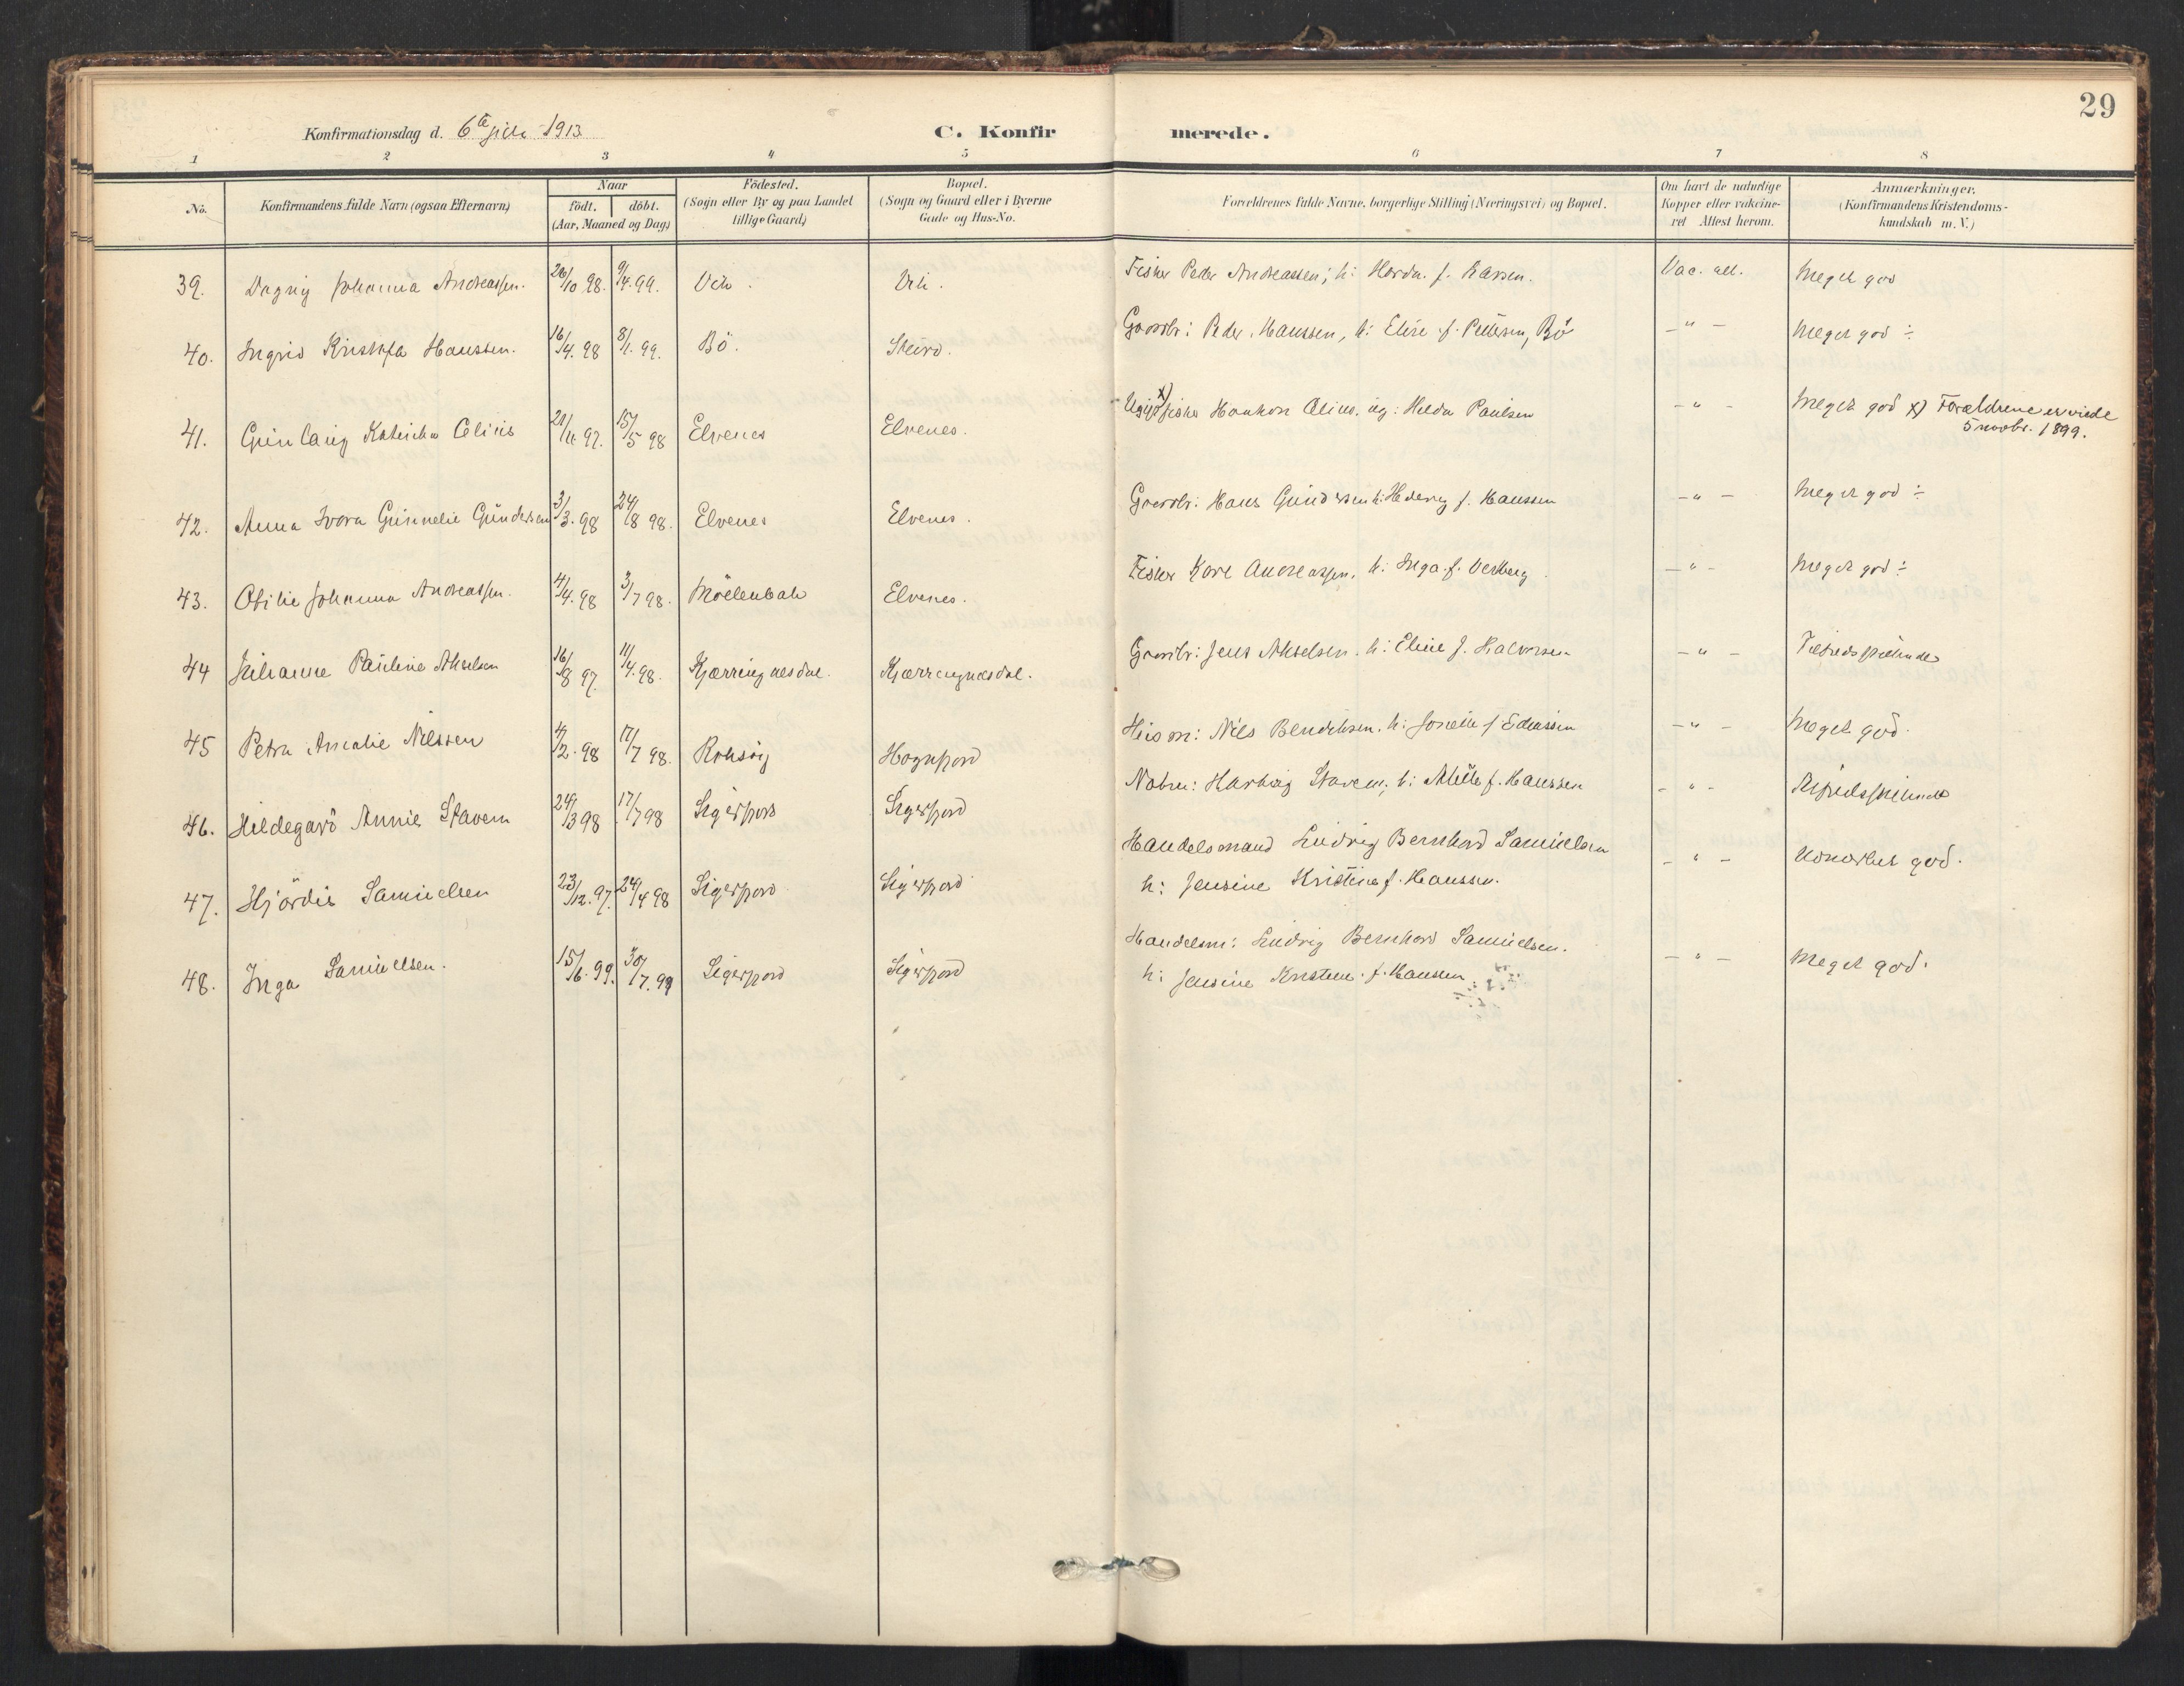 29
Konfirmationsdag d. 6te juli 1913 C. Konfir merede.
1 2 3 4 5 6 7 8
No. Konfirmandens fulde Navn (ogsaa Efternavn) Naar födt. döbt. (Aar, Maaned og Dag) Födested. (Sogn eller By og paa Landet tillige Gaard) Bopæl. (Sogn og Gaard eller i Byerne Gade og Hus-No. Forældrenes fulde Navne, borgerlige Stilling (Næringsvei) og Bopæl. Om havt de naturlige Kopper eller vaksineret Attest herom. Anmærkninger. (Konfirmandens Kristendomskundskab m. V.)
39. Dagny Johanna Andreassen. 26/10 98. 9/4. 99. Vik. Vik. Fisker Peder Andreassen; h: Harda f. Larsen. Vac. att. Meget god
40. Ingrid Kristofa Hanssen. 16/4. 98 8/1. 99. Bö. Steiro. Gaardbr: Peder Hanssen, h: Elise f. Pettersen, Bö – " – Meget god ÷
41. Gunlaug Katinka Olius 21/11 97. 15/5 98 Elvenes Elvenes. Ugift x) fisker Haakon Olius, ug: Hilda Paulsen – " – Meget god x) Forældrene er viede
5 novbr. 1899.
42. Anna Ivora Gunnelie Gundersen 3/3. 98 24/8 98. Elvenes Elvenes. Gaardbr: Hans Gundersen h: Hedevig f. Hanssen – " – Meget god ÷
43. Otilie Johanna Andreassen. 4/4. 98 3/7 98. Elvenes. Fisker Karl Andreassen, h: Inga f. – " – Meget god ÷
44 Julianne Pauline Akselsen 16/8 97. 11/4. 98. Kjærringnesdal. Kjærringnesdal. Gaardbr: Jens Akselsen. h: Eline f. Halvorsen – " – Tilfredsstillende
45 Petra Amalie Nilssen 4/2. 98 17/7 98. Roksöy Hognfjord Husm: Nils Bendiksen. h: f. Eliassen – " – Meget god.
46. Hildegard Annie Stavem 24/3 98 17/7 98 Sigerfjord Sigerfjord Hartvig Stavem, h: Mille f. Hanssen – " – Tilfredsstillende
47. Hjördis Samuelsen 23/12. 97. 24/4 98 Sigerfjord Sigerfjord Handelsmand Ludvig Bernhard Samuelsen
h: Jensine Kristine f. Hanssen. – " – Udmærket god.
48. Inga Samuelsen. 15/6. 99. 30/7. 99 Sigerfjord Sigerfjord Handelsm: Ludvig Bernhard Samuelsen.
h: Jensine Kristine f. Hanssen – " – Meget god.